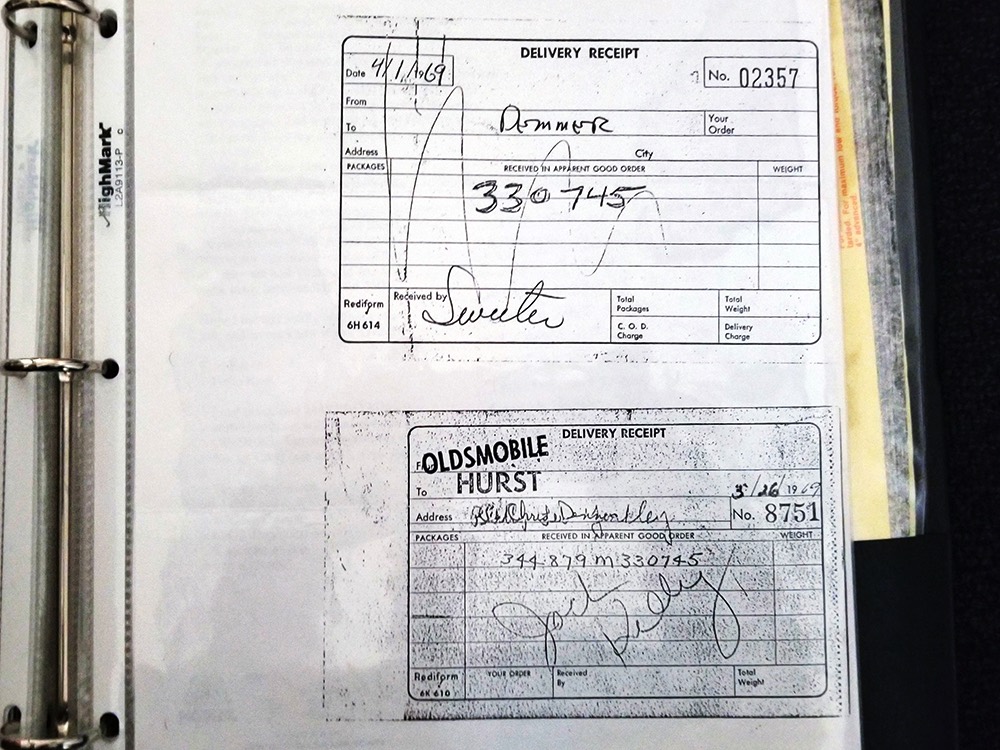 HighMark
L2A9113-P C
DELIVERY RECEIPT
Date 4/1/1969
No. 02357
From
To Demmer
Your Order
Address City
PACKAGES RECEIVED IN APPARENT GOOD ORDER WEIGHT
330745
Rediform
6H 614
Received by
Total Packages
Total Weight
C. O. D. Charge
Delivery Charge
DELIVERY RECEIPT
OLDSMOBILE
To HURST
3/26 1969
Address
No. 8751
PACKAGES RECEIVED IN APPARENT GOOD ORDER WEIGHT
344-879 m 330745
Jack Kelly
Rediform
6K 610
YOUR ORDER
Received By
Total Weight